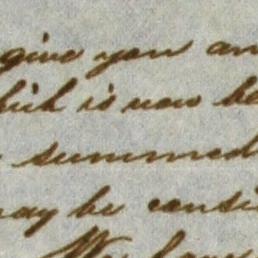 give you an
which is now be
summed
may be consi
We have